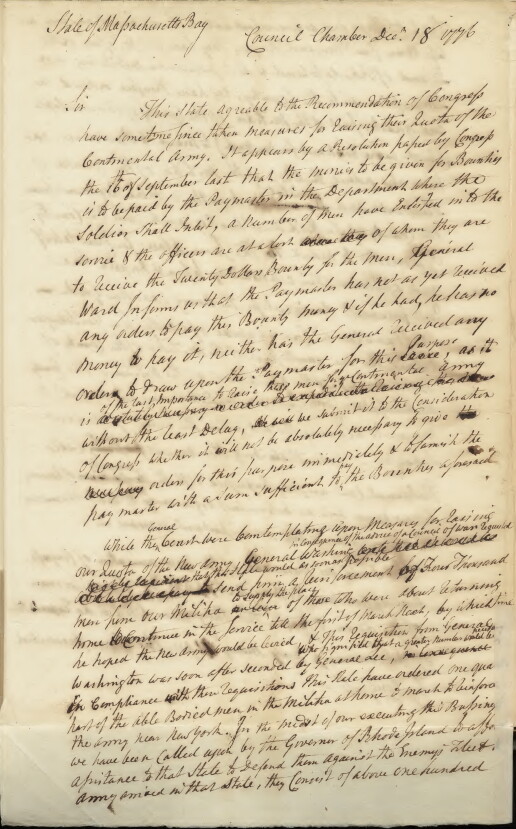 State of Massachusetts Bay
Council Chamber Decr. 18 1776
Sir This State agreable to the Recommendation of Congress
have sometime since taken measures for Raising their Quota of the
Continental Army, It appears by a Resolution passed by Congress
the 16 of September last that the monies to be given for Bounties
is to be paid by the Paymaster in the Department where the
Soldier Shall Inlist, a Number of men have Enlisted into the
service & the officers are at a lost of whom they are
to receive the Twenty Dollars Bounty for the men, General
Ward Informs us that the Paymaster has not as yet received
any orders to pay this Bounty money & if he had, he has no
money to pay it, neither has the General received any
orders to draw upon the Paymaster for this Purpose, as it
is of the last Importance to Raise these men for a Continental Army
without the least Delay, we submit it to the Consideration
of Congress whether it will not be absolutely necessary to give
orders for this purpose immediately & to furnish the
paymaster with a sum sufficient to pay the Bounties aforesaid
While the General Court were Contemplating upon Measures for Raising
our Quota of the New Army General Washington in Consequence of the advice of a Council of War requested
that this State would as soon as possible send him a Reinforcement of Four Thousand
men from our Militia to Supply the place of those who were about returning
home to Continue in the Service till the first of March next, by which time
he hoped the New Army would be levied, & this Requisition from General
Washington was soon after seconded by General Lee, who
In Compliance with these requisitions this State have ordered one qua
part of the able Bodied men in the Militia at home to march to reinforce
the army near New York. In the midst of our executing this Business
we have been Called upon by the Governor of Rhode Island to afford
assistance to that State to Defend them against the Enemys Fleet &
army arrived in that State, they Consist of above one hundred